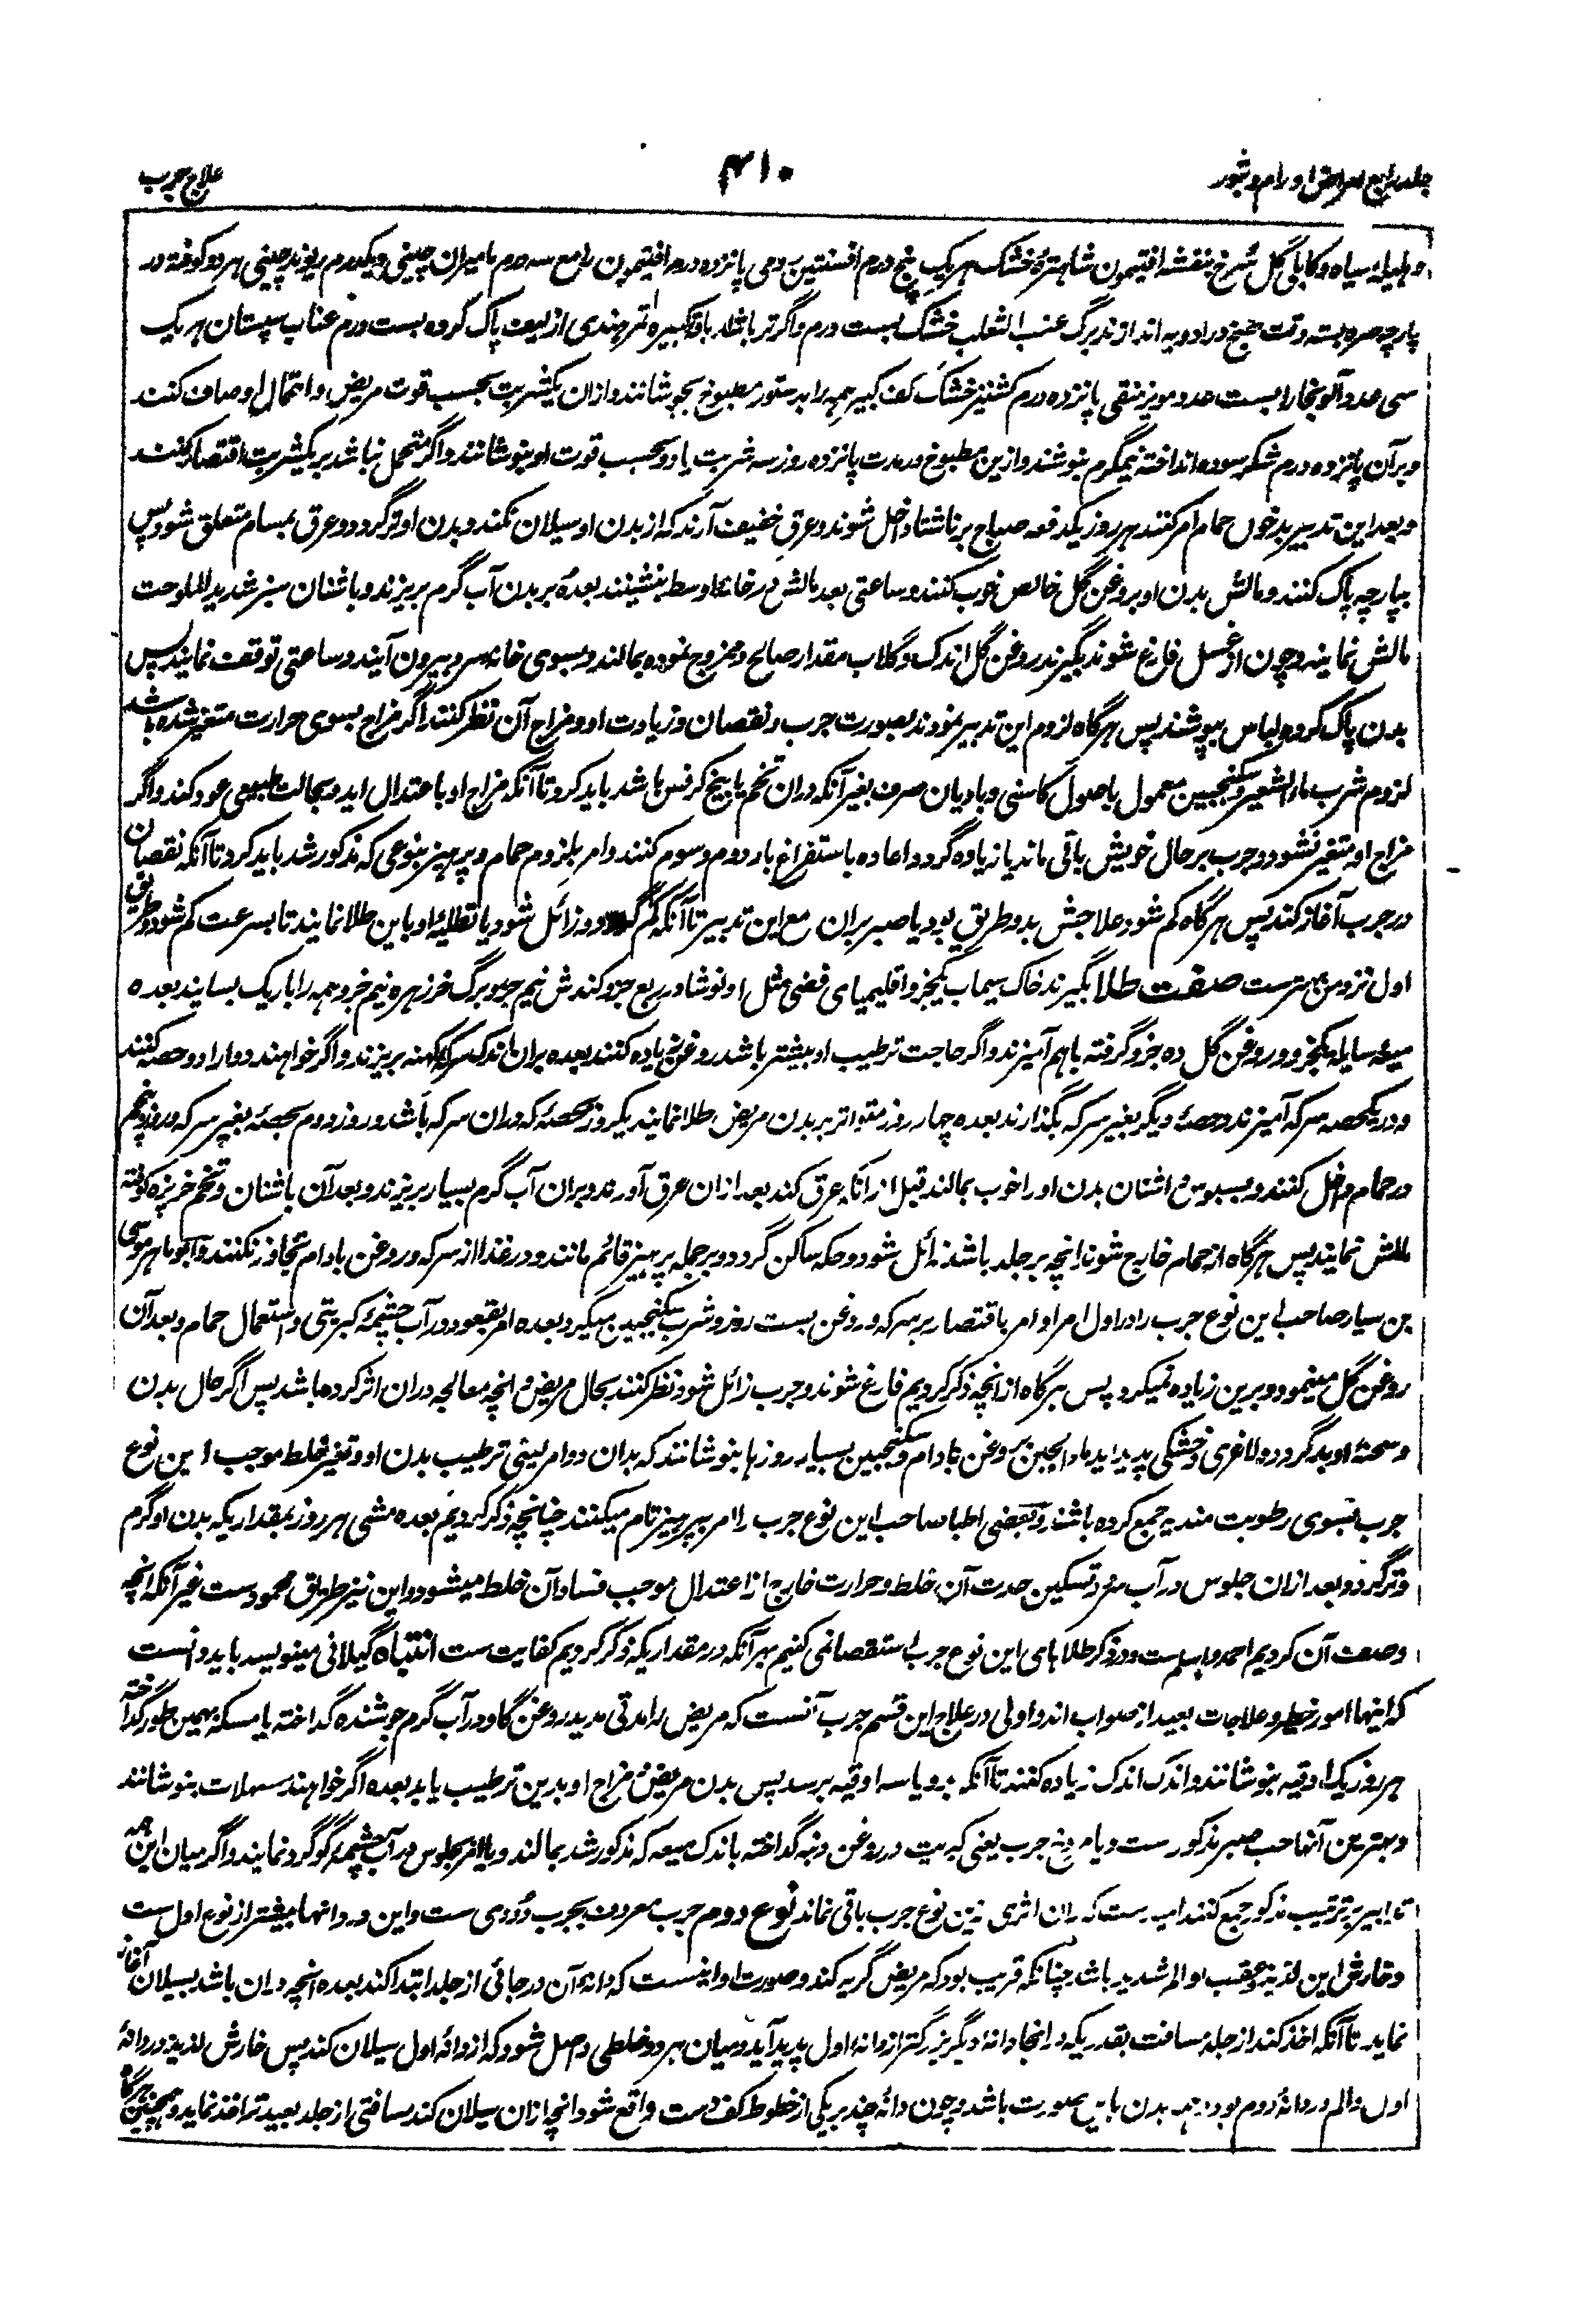 جلد رابع امراض اورام و بثور
۳۱۰
علاج جرب
و هلیلهٔ سیاه و کابلی گل سرخ بنفشه افتیمون شاهترهٔ خشک هریک پنج درم افسنتین رومی پانزده درم افتیمون رابع سه درم مامیران چینی و یکدرم ریوند چینی هر دو کوفته در
پارچه صره بسته وقت طبخ در ادویه اندازند برگ عنب الثعلب خشک بست درم و اگر تر باشد باقه کبیره تمر هندی از لیف پاک کرده بست درم عناب سپستان هریک
سی عدد آلو بخارا بست عدد مویز منقی پانزده درم کشنیز خشک کف کبیر همه را بدستور مطبوخ بجوشانند و ازان یکشربت بحسب قوت مریض و احتمال او صاف کنند
و بر آن پانزده درم شکر سوده انداخته نیمگرم بنوشند و ازین مطبوخ در مدت پانزده روز سه شربت یا دو بحسب قوت او بنوشانند و اگر متحمل نباشد بر یکشربت اقتصار کنند
و بعد این تدبیر بدخول حمام امر کنند هر روز یکدفعه صباح بر ناشتا داخل شوند و عرق خفیف آرند که از بدن او سیلان نکند و بدن او تر گردد و عرق بمسام متعلق شود پس
بپارچه پاک کنند و مالش بدن او بروغن گل خالص خوب کنند و ساعتی بعد مالش در خانهٔ اوسط بنشینند بعده بر بدن آب گرم بریزند و باشنان سبز شدید الملوحت
مالش نمایند و چون از غسل فارغ شوند بگیرند روغن گل اندک و گلاب مقدار صالح و ممزوج نموده بمالند و بسوی خانه سرد بیرون آیند و ساعتی توقف نمایند پس
بدن پاک کرده لباس بپوشند پس هرگاه لزوم این تدبیر نمودند بصورت جرب و نقصان و زیادت او و مزاج آن نظر کنند اگر مزاج بسوی حرارت متغیر شده باشد
لزوم شرب ماء الشعیر و سکنجبین معمول باصول کاسنی و بادیان صرف بغیر آنکه دران تخم یا بیخ کرفس باشد باید کرد تا آنکه مزاج او باعتدال آید و بحالت طبیعی عود کند و اگر
مزاج او متغیر نشود و جرب بر حال خویش باقی ماند یا زیاده گردد اعاده باستفراغ بار دوم و سوم کنند و امر بلزوم حمام و پرهیز بنوعی که مذکور شد باید کرد تا آنکه نقصان
در جرب آغاز کند پس هرگاه کم شود علاجش بدو طریق بود یا صبر بران مع این تدبیر تا آنکه کم گردد و زائل شود یا تطلیهٔ او باین طلا نمایند تا بسرعت کم شود و طریق
اول نزد من بهترست صفت طلا بگیرند خاک سیماب یکجزو اقلیمیای فضی مثل او نوشادر ربع جزو کندش نیم جزو برگ خرزهره نیم جزو همه را باریک بسایند بعده
میعه سایله یکجزو و روغن گل ده جزو گرفته باهم آمیزند و اگر حاجت ترطیب او بیشتر باشد روغن زیاده کنند بعده بران اندک سرکه کهنه بریزند و اگر خواهند دوا را دو حصه کنند
و در یکحصه سرکه آمیزند و حصهٔ دیگر بغیر سرکه بگذارند بعده چهار روز متواتر بر بدن مریض طلا نمایند یکروز بحصهٔ که دران سرکه باشد و روز دوم بحصهٔ بغیر سرکه و روز پنجم
در حمام داخل کنند و بسبوس و اشنان بدن او را خوب بمالند قبل از آنکه عرق کند بعد ازان عرق آورند و بران آب گرم بسیار بریزند و بعد آن باشنان و تخم خربزه کوفته
مالش نمایند پس هرگاه از حمام خارج شوند انچه بر جلد باشد زائل شود و حکه ساکن گردد و بر جمله پرهیز قائم مانند و در غذا از سرکه و روغن بادام تجاوز نکنند و ابو ماهر موسی
بن سیار صاحب این نوع جرب را در اول امر او امر باقتصار بر سرکه و روغن بست روز و شرب سکنجبین میکرد بعده امر بقعود در آب چشمهٔ کبریتی و استعمال حمام و بعد آن
روغن گل مینمود و برین زیاده نمیکرد پس هرگاه از انچه ذکر کردیم فارغ شوند و جرب زائل شود نظر کنند بحال مریض و انچه معالجه دران اثر کرده باشد پس اگر حال بدن
و سحنهٔ او بد گردد و لاغری و خشکی پدید آید ماء الجبن بروغن بادام و سکنجبین بسیار روزها بنوشانند که بدان دو امر یعنی ترطیب بدن او و تغیر خلط موجب این نوع
جرب بسوی رطوبت مندیه جمع کرده باشند و بعضی اطبا صاحب این نوع جرب را امر بپرهیز تام میکنند چنانچه ذکر کردیم بعده مشی هر روز بمقداریکه بدن او گرم
و تر گردد و بعد ازان جلوس در آب سرد و تسکین حدت آن خلط و حرارت خارج از اعتدال موجب فساد آن خلط میشود و این نیز طریق محمودست غیر آنکه انچه
وصف آن کردیم احمد و اسلم ست و در ذکر طلاهای این نوع جرب استقصا نمی کنیم بهر آنکه در مقداریکه ذکر کردیم کفایت ست انتباه گیلانی مینویسد باید دانست
که اینها امور خطر و علاجات بعید از صواب اند و اولی در علاج این قسم جرب آنست که مریض را مدتی مدید روغن گاو در آب گرم جوشنده گداخته یا مسکه بهمین طور گداخته
هر روز یک اوقیه بنوشانند و اندک اندک زیاده کنند تا آنکه بدو یا سه اوقیه برسد پس بدن مریض و مزاج او بدین ترطیب یابد بعده اگر خواهند مسهلات بنوشانند
و بهترین آنها حب صبر مذکورست و یا جرب یعنی کبریت در روغن دنبه گداخته باندک میعه که مذکور شد بمالند و یا امر بجلوس در آب چشمهٔ گوگرد نمایند و اگر میان این همه
تدابیر بترتیب مذکور جمع کنند امیدست که ازان اثری زین نوع جرب باقی نماند نوع دوم جرب معروف بجرب دودی ست و این و دانها بیشتر از نوع اول ست
و خارش این لذیذ و عقب او الم شدید باشد چنانکه قریب بود که مریض گریه کند و صورت او اینست که دانه آن در جائی از جلد ابتدا کند بعده انچه دران باشد بسیلان آغاز
نماید تا آنکه اخذ کند از جلد مسافت بقدریکه در انجا دانهٔ دیگر بزرگتر از دانهٔ اول پدید آید و میان هر دو خلطی واصل شود که از دانهٔ اول سیلان کند پس خارش لذیذ در دانهٔ
اول و الم در دانهٔ دوم بود همه بدن باین صورت باشد و چون دانهٔ چند بر یکی از خطوط کف دست واقع شود انچه ازان سیلان کند مسافتی از جلد بعیدتر اخذ نماید و همچنین هرگاه